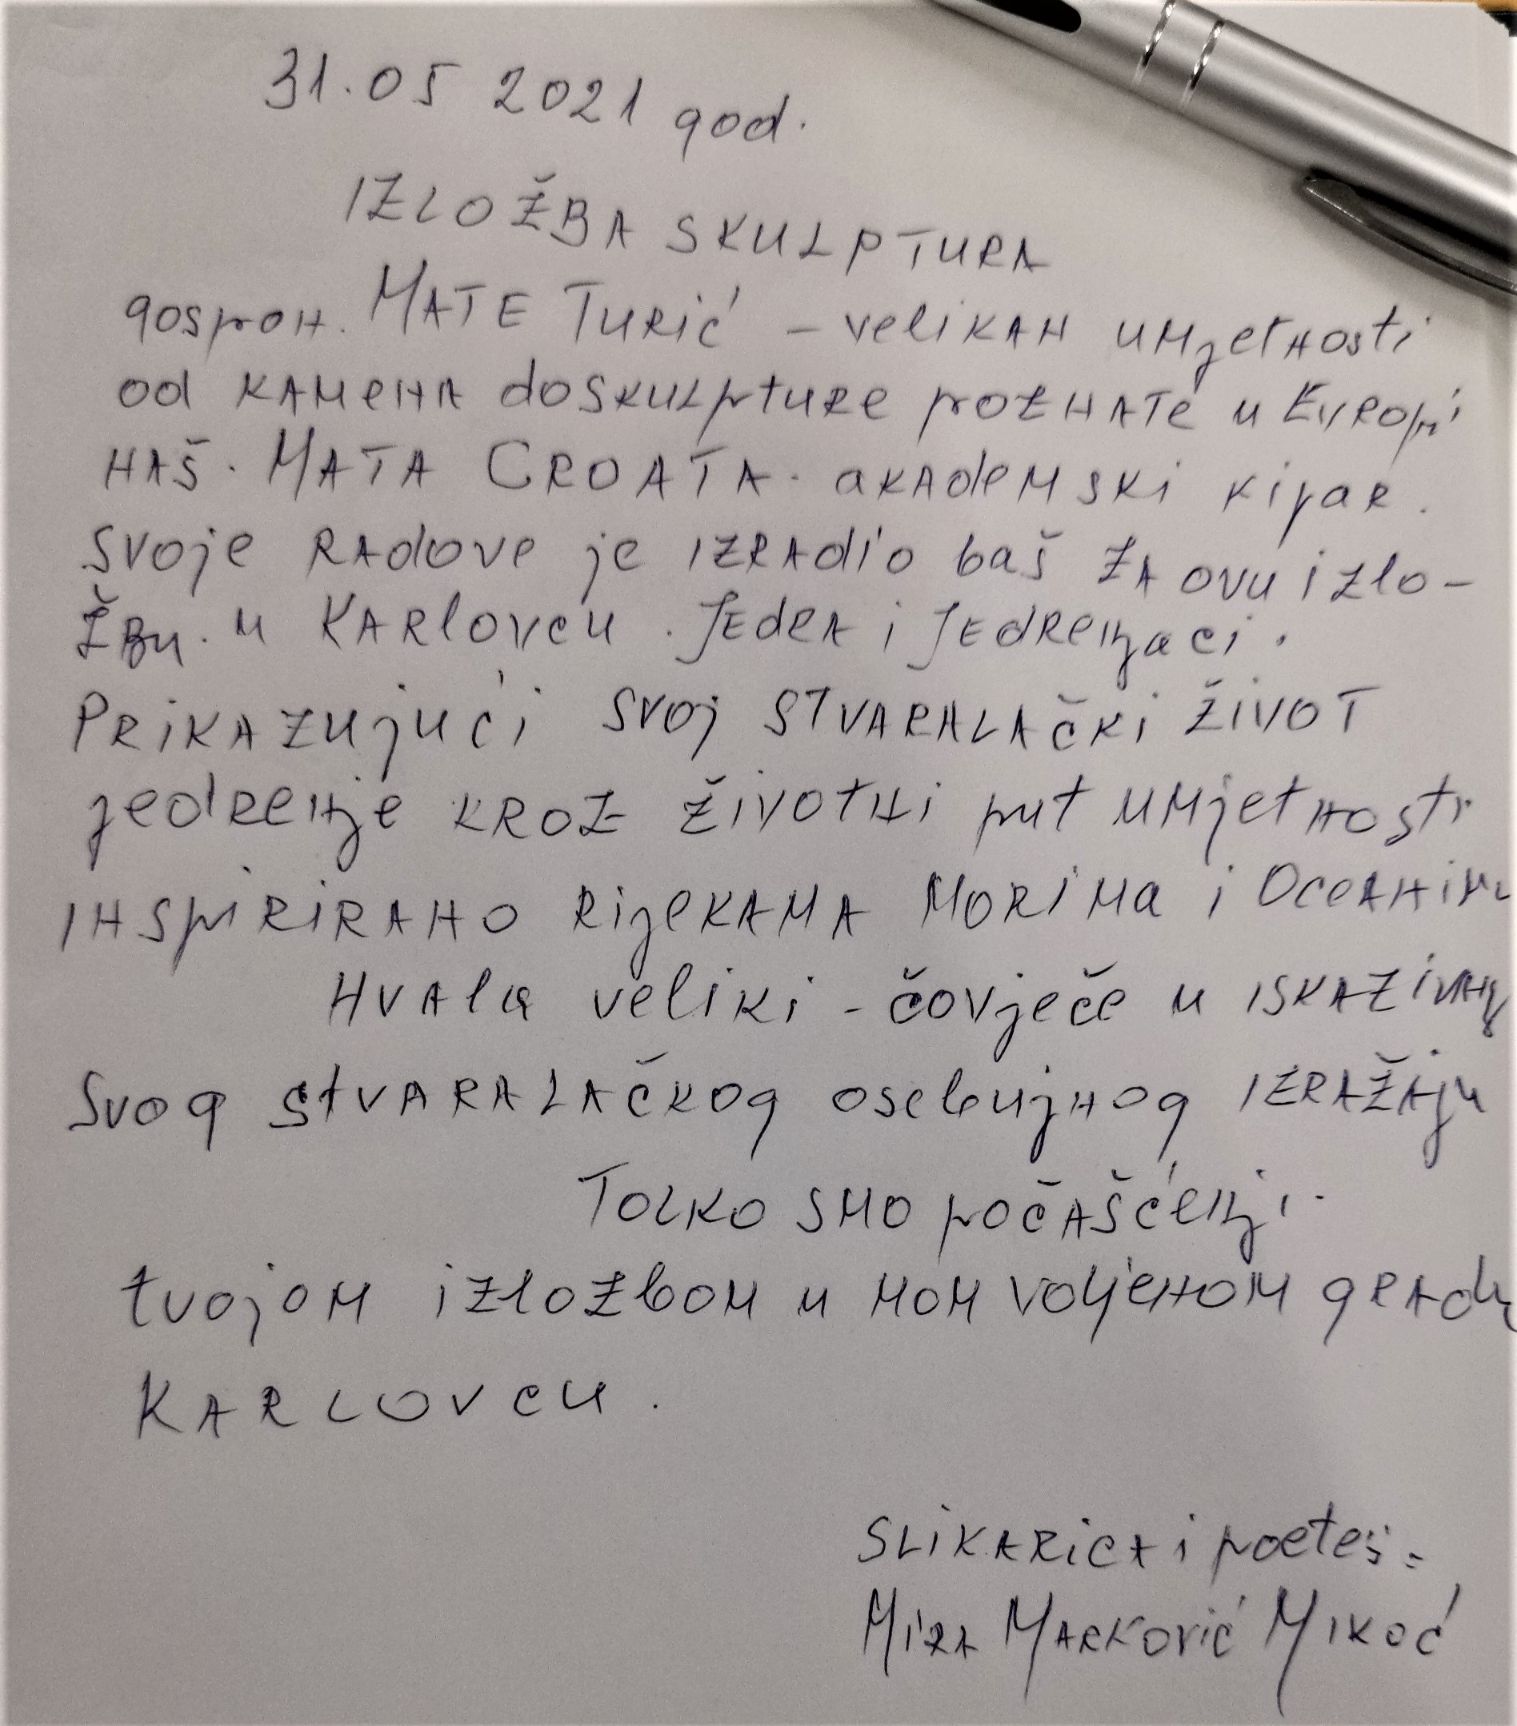 31.05 2021 god.
IZLOŽBA SKULPTURA
gospon. MATE TURIĆ - velikan umjetnosti
od kamena do skulpture poznate u Evropi
naš. MATA CROATA. akademski kipar.
svoje radove je izradio baš za ovu izlo-
žbu. u Karlovcu. Jedra i Jedrenjaci.
Prikazujući svoj stvaralački život
jedrenje kroz životni put umjetnosti
inspirirano rijekama morima i Oceanima
Hvala veliki - čovječe u iskazivanju
svog stvaralačkog osebujnog izražaju
Tolko smo počašćenji.
tvojom izlozbom u mom voljenom gradu
KARLOVCU.
SLIKARICA i poeteš:
Mira Marković Mikoć